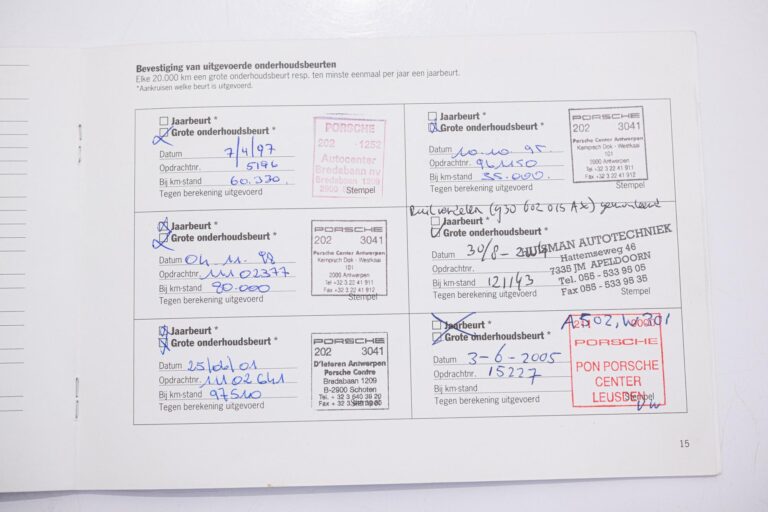 Bevestiging van uitgevoerde onderhoudsbeurten
Elke 20.000 km een grote onderhoudsbeurt resp. ten minste eenmaal per jaar een jaarbeurt.
*Aankruisen welke beurt is uitgevoerd.
Jaarbeurt *
Grote onderhoudsbeurt *
Datum 7/4/97
Opdrachtnr. 5196
Bij km-stand 60.330.
Tegen berekening uitgevoerd
PORSCHE
202 -1252
Autocenter
Bredabaan nv
Bredabaan 1209
2900
Stempel
Jaarbeurt *
Grote onderhoudsbeurt *
Datum 10.10.95.
Opdrachtnr. 961150
Bij km-stand 35.000.
Tegen berekening uitgevoerd
PORSCHE
202 3041
Porsche Centre Antwerpen
Kempisch Dok - Westkaai
101
2000 Antwerpen
Tel +32 3 22 41 911
Fax +32 3 22 41 912
Stempel
Jaarbeurt *
Grote onderhoudsbeurt *
Datum 04.11.98
Opdrachtnr. 11102377
Bij km-stand 80.000
Tegen berekening uitgevoerd
PORSCHE
202 3041
Porsche Centre Antwerpen
Kempisch Dok - Westkaai
101
2000 Antwerpen
Tel +32 3 22 41 911
Fax +32 3 22 41 912
Stempel
(930 602 015 AX)
Jaarbeurt *
Grote onderhoudsbeurt *
Datum 30/8 -
Opdrachtnr.
Bij km-stand 121143
Tegen berekening uitgevoerd
HUISMAN AUTOTECHNIEK
Hattemseweg 46
7335 JM APELDOORN
Tel. 055 - 533 95 05
Fax 055 - 533 95 35
Stempel
Jaarbeurt *
Grote onderhoudsbeurt *
Datum 25/04/01
Opdrachtnr. 1102641
Bij km-stand 97510
Tegen berekening uitgevoerd
PORSCHE
202 3041
D'Ieteren Antwerpen
Porsche Centre
Bredabaan 1209
B-2900 Schoten
Tel. + 32 3 640 39 20
Fax + 32 3
Stempel
Jaarbeurt *
Grote onderhoudsbeurt *
Datum 3-6-2005
Opdrachtnr. 15227
Bij km-stand
Tegen berekening uitgevoerd
PORSCHE
PON PORSCHE
CENTER
LEUSDEN
Stempel
15